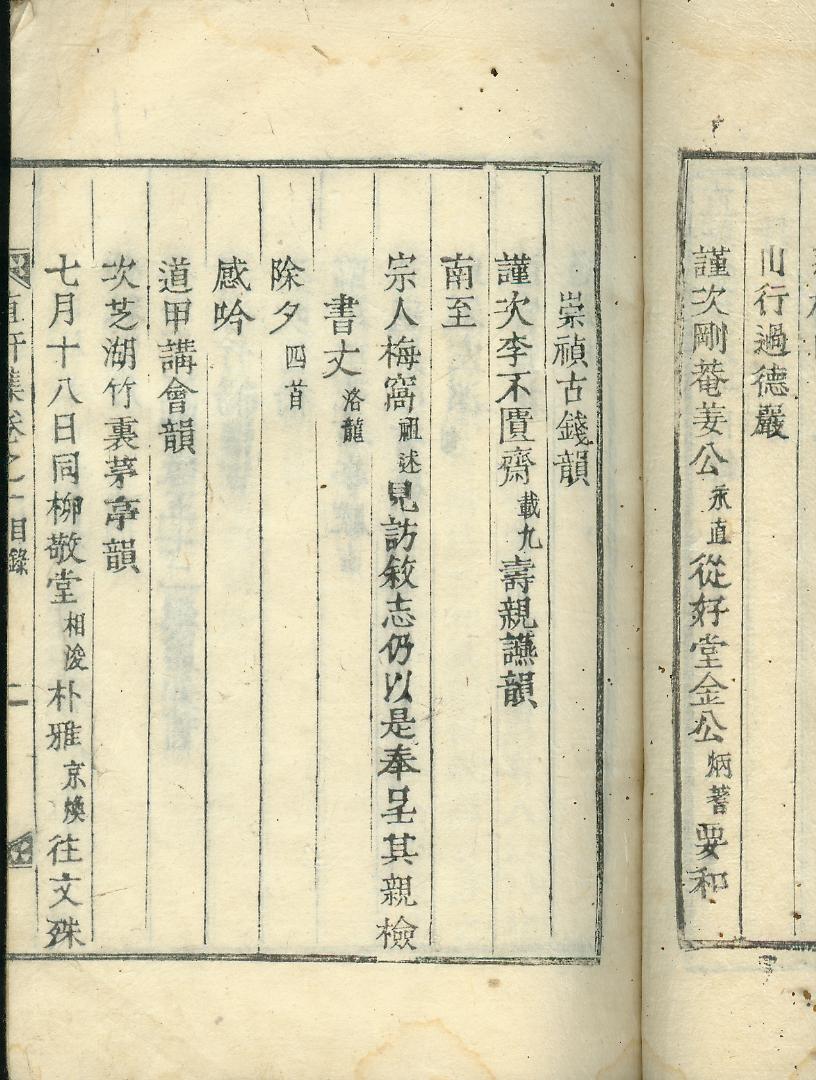 山行過德嚴
謹次剛菴姜公永直從好堂金公炳蓍要和
崇禎古錢韻
謹次李不匱齋載九壽親讌韻
南至
宗人梅窩祖述見訪敘志仍以是奉呈其親檢
書丈洛龍
除夕四首
感吟
道甲講會韻
次芝湖竹裏茅亭韻
七月十八日同柳敬堂相浚朴雅京煥往文殊
軒集卷之一目錄 二